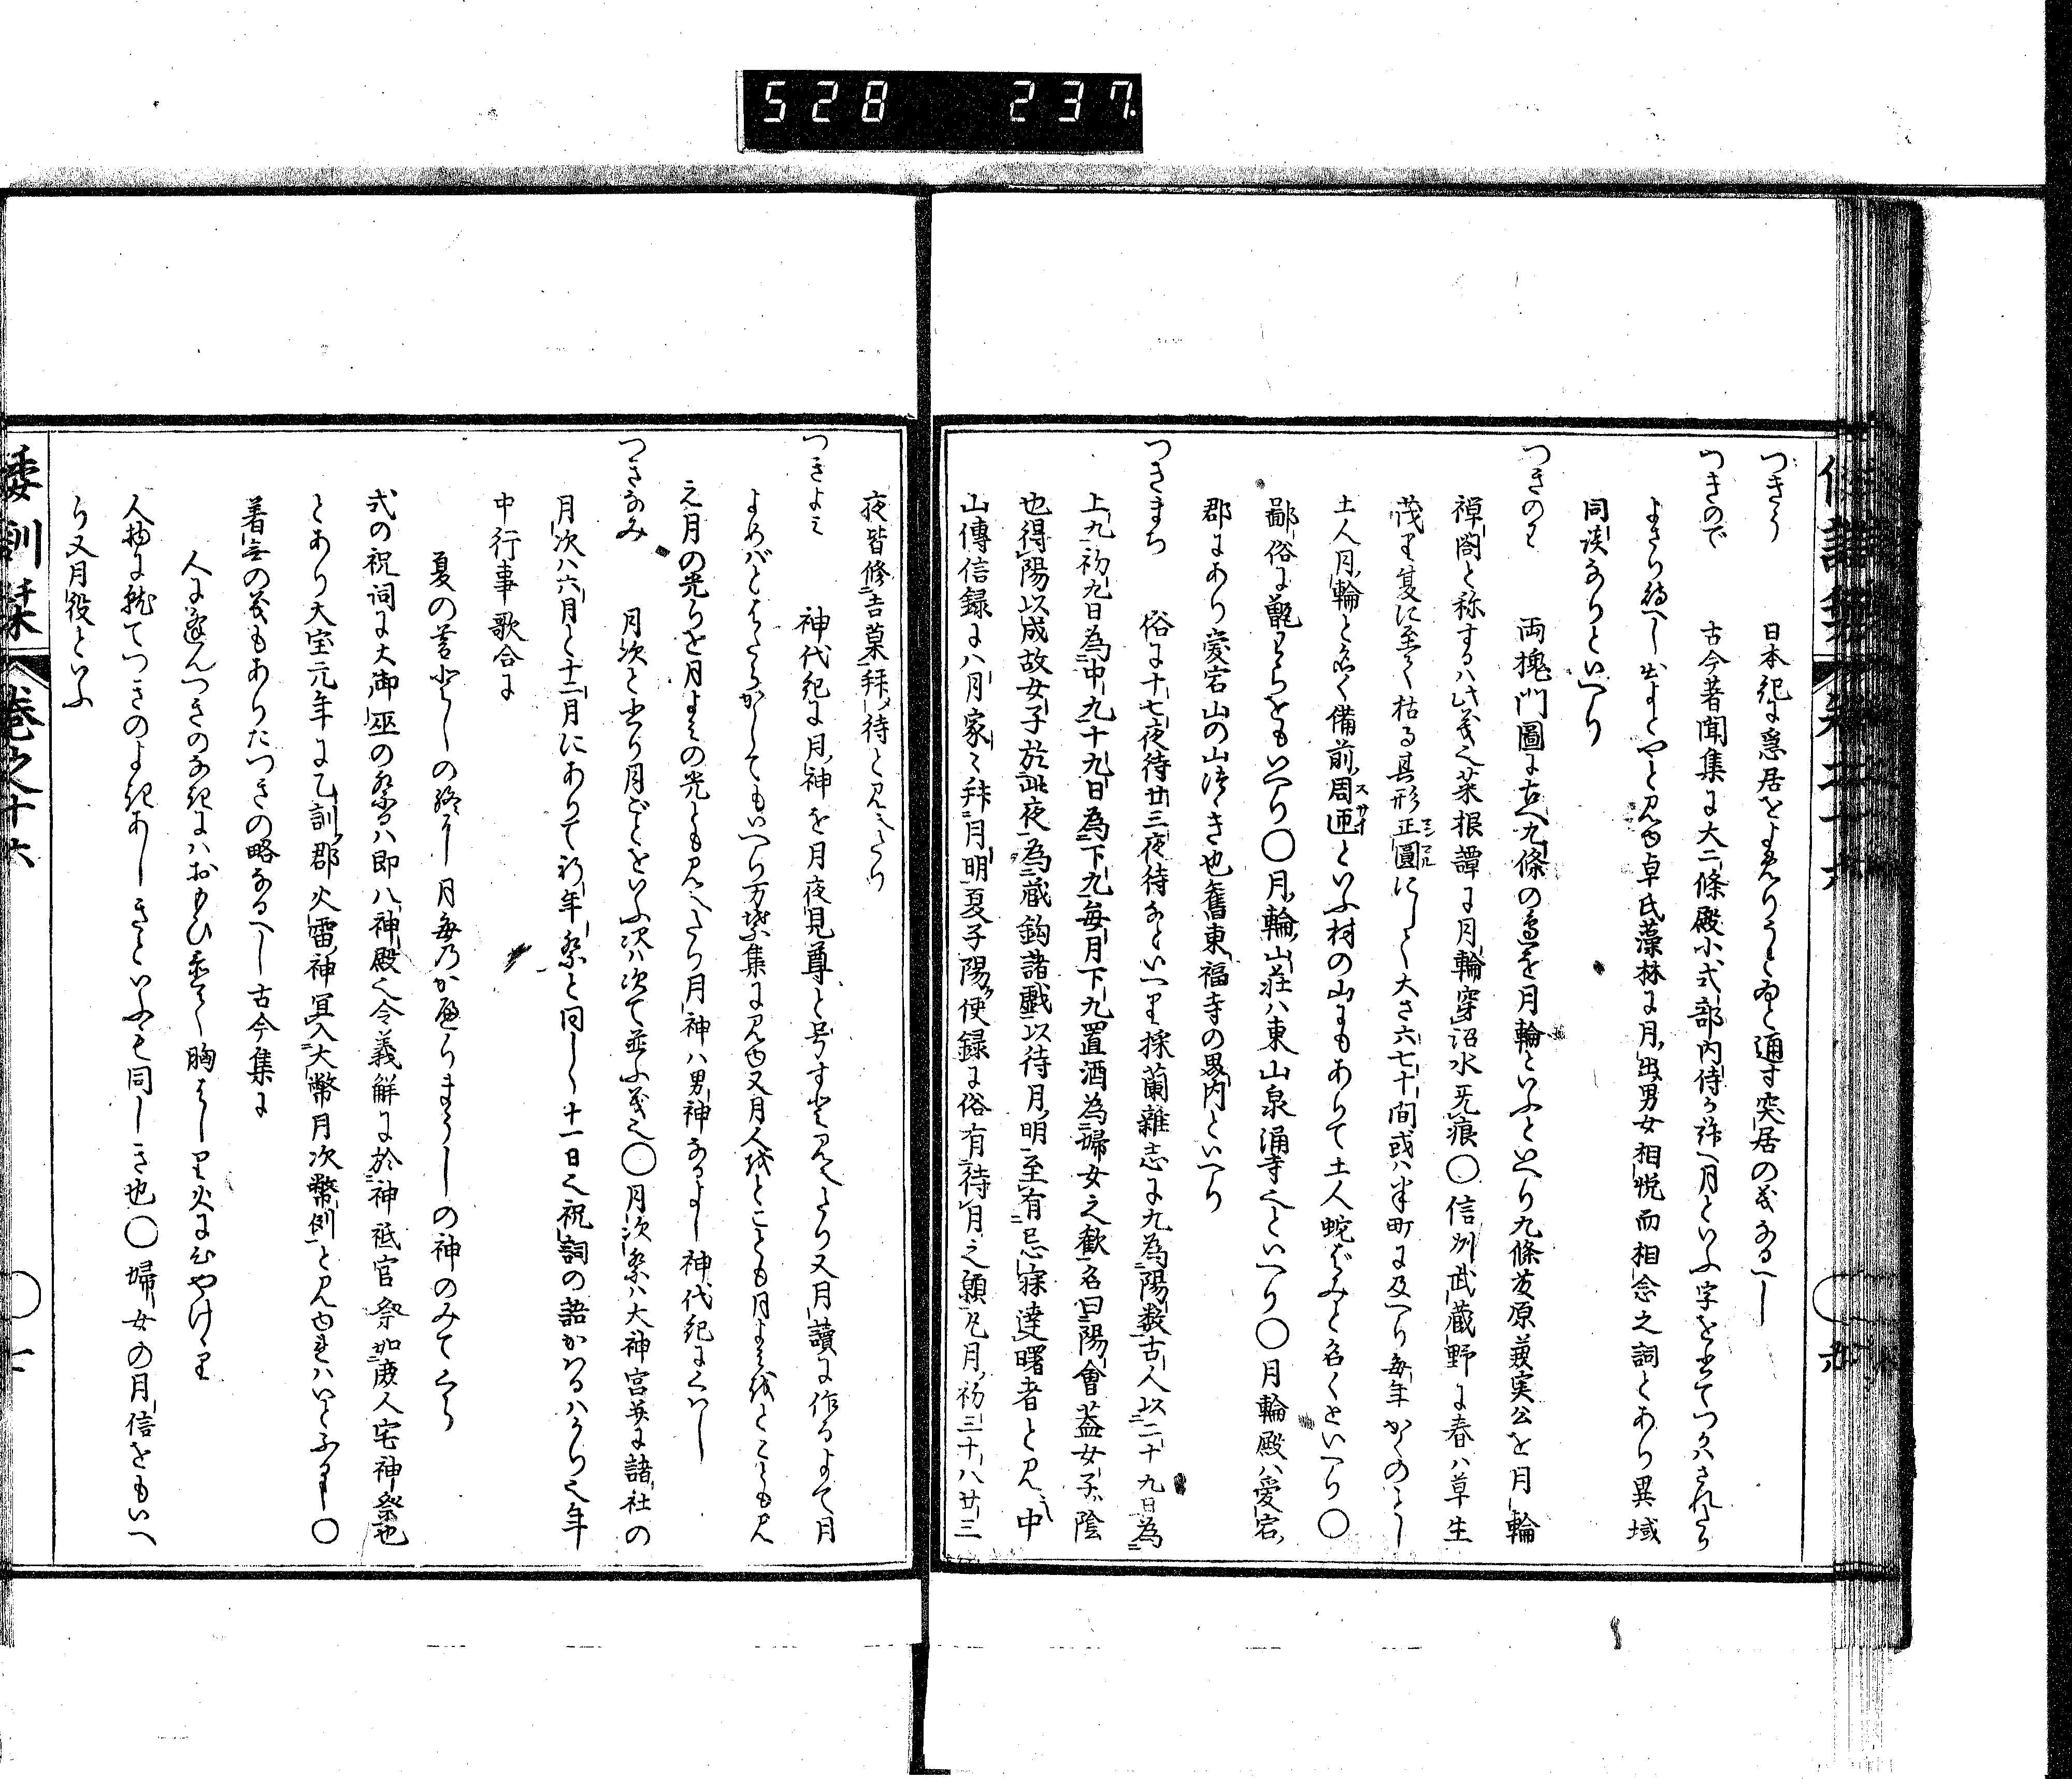 528 237
つきう 日本紀に急居をよめりうとゐと通す突居の義なるへし
つきので 古今著聞集に大二條殿小式部内侍か許へ月といふ字を書てつかハされたり
よさり待へし出よとやと見ゆ卓氏藻林に月出男女相悦而相念之詞とあり異域
同談なりといへり
つきのわ 両槐門圖に古へ九條の邊を月輪といふといへり九條兼実公を月輪
禅閤と称するハ此義也菜根譚に月輪穿沼水无痕○信州武蔵野に春ハ草生
茂り夏に至て枯る其形正圓にして大さ六七十間或ハ半町に及へり毎年かくのことし
土人月輪と名く備前周匝といふ村の山にもありて土人蛇ばみと名くといへり○
鄙俗に甑わらをもいへり○月輪山荘ハ東山泉涌寺也といへり○月輪殿ハ愛宕
郡にあり愛宕山の山つゝき也舊東福寺の界内といへり
つきまち 俗に十七夜待廿三夜待なといへり採蘭雜志に九為陽数古人以二十九日為
上九初九日為中九十九日為下九毎月下九置酒為婦女之歓名曰陽會蓋女子陰
也得陽以成故女子於此夜為蔵鈎諸戯以待月明至有忘寐達曙者と見ゆ中
山傳信録に八月家々拜月明夏子陽使録に俗有待月之願凡月初三十八廿三
夜皆修吉菓拜待と見えたり
つきよみ 神代紀に月神を月夜見尊と号すと見えたり又月讀に作るよて月
よめばとはたらかしてもいへり万葉集に見ゆ又月人をとことも月よみをとことも見
え月の光りを月よみの光とも見えたり月神ハ男神なるよし神代紀にくハし
つきなみ 月次と書り月ごとをいふ次ハ次て並ふ義也○月次祭ハ大神宮并に諸社の
月次ハ六月と十二月にありて祈年祭と同しく十一日也祝詞の語かハるハかり也年
中行事歌合に
夏の暮 の終りし月毎のか りまうしの神のみてくら
式の祝詞に大御巫の祭るハ即八神殿也令義解に於神祇官祭如庶人宅神祭也
とあり大宝元年に乙訓郡火雷神宜入大幣月次幣例と見ゆれハいとふりし○
着無の義もありたつきの略なるへし古今集に
人に逢んつきのなきにハおもひ置て胸はしり火に心やけをり
人物に就てつきのよきあしきといふも同しき也○婦女の月信をもいへ
り又月役といふ
倭訓栞 巻之十六